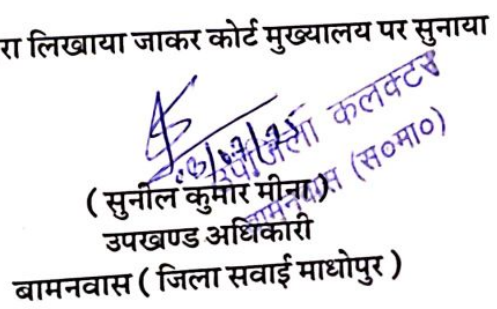 रा लिखाया जाकर कोर्ट मुख्यालय पर सुनाया
उपजिला कलक्टर
बामनवास (स०मा०)
( सुनील कुमार मीना )
उपखण्ड अधिकारी
बामनवास ( जिला सवाई माधोपुर )